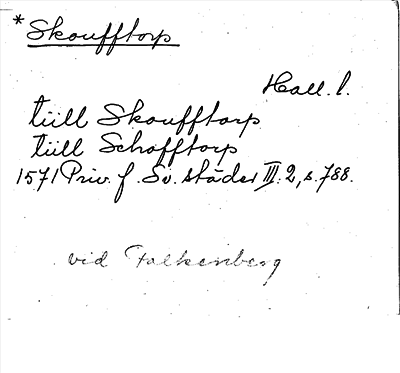 *Skoufftorp
Hall. l.
tüll Skoufftorp
tüll Schofftorp
1571 Priv. f. Sv. städer III: 2, s. 788.
vid Falkenberg